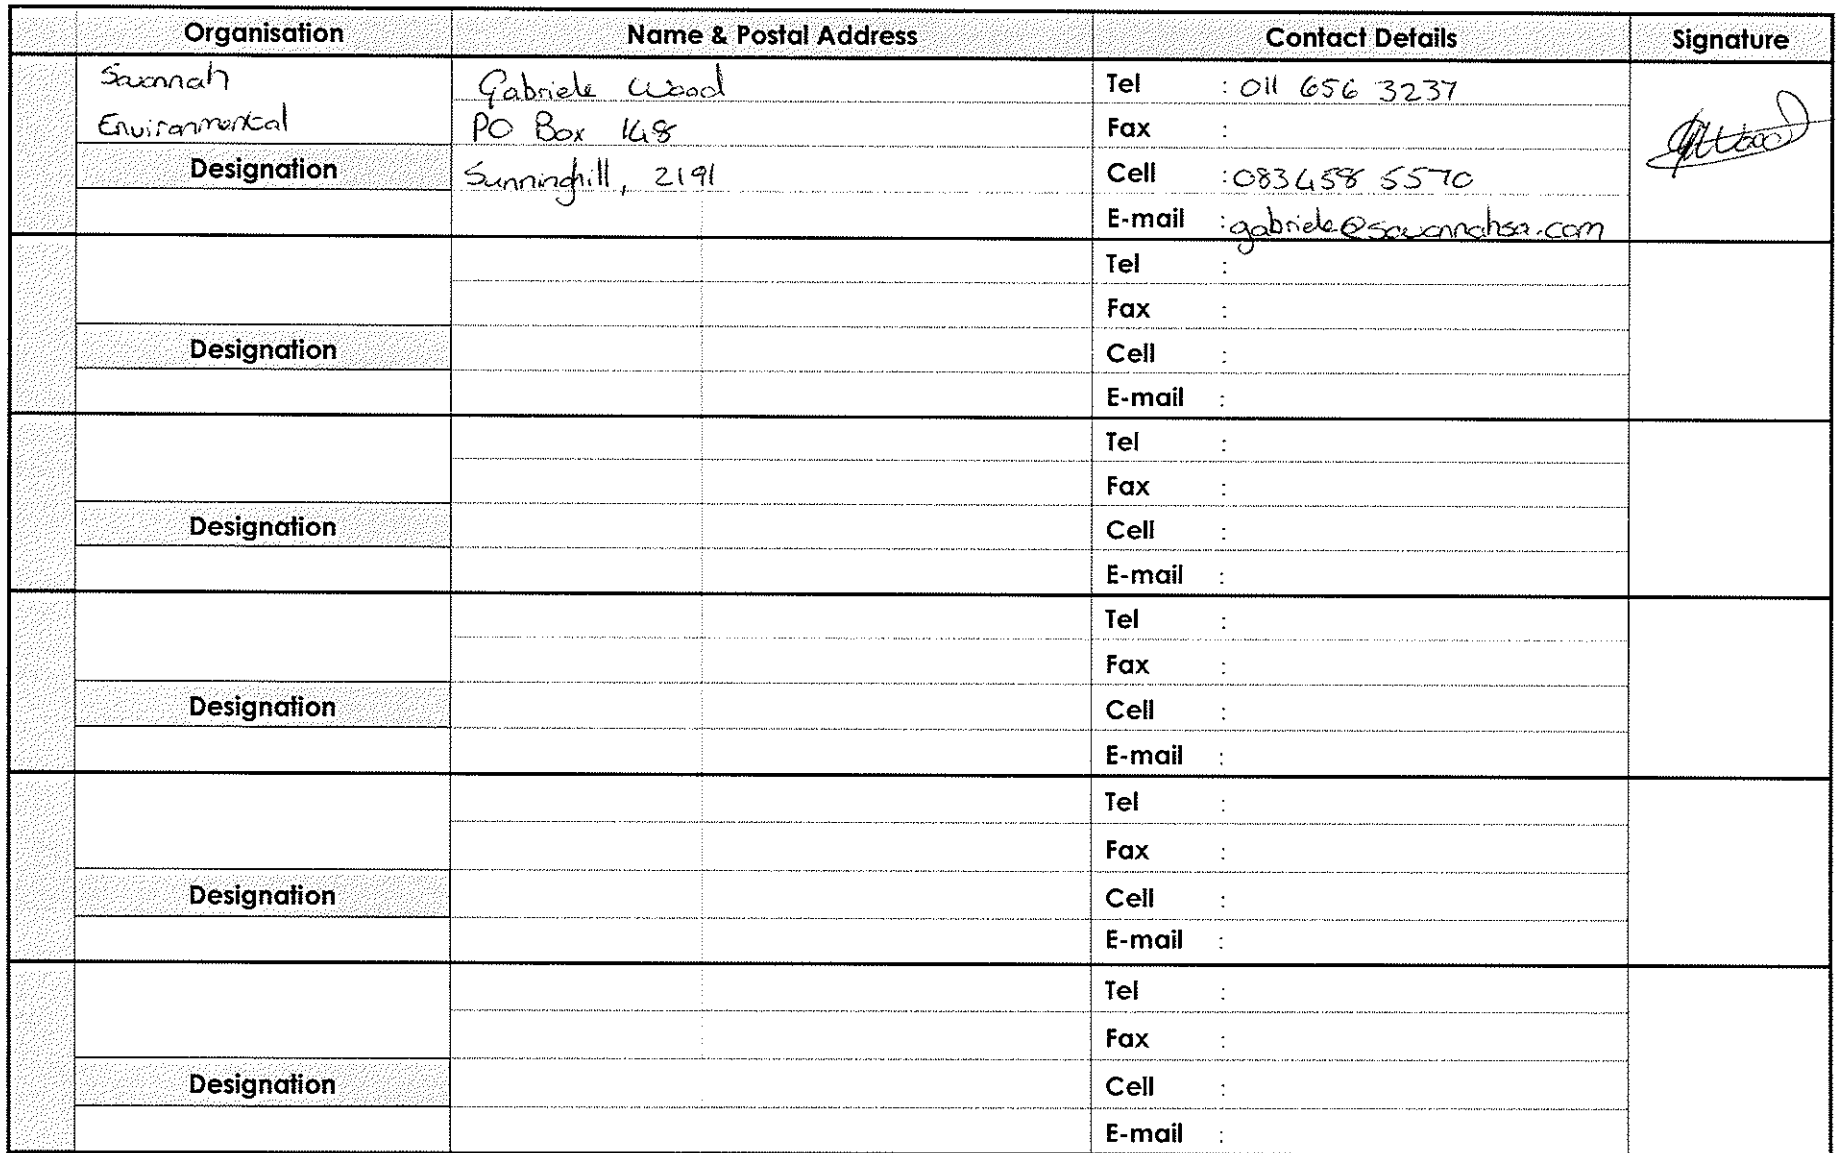 Organisation Name & Postal Address Contact Details Signature
Savannah Gabriele Wood Tel : 011 656 3237
Environmental PO Box 148 Fax :
Designation Sunninghill, 2191 Cell : 083 458 5570
E-mail : gabriele@savannahsa.com
GWood
Tel :
Fax :
Designation Cell :
E-mail :
Tel :
Fax :
Designation Cell :
E-mail :
Tel :
Fax :
Designation Cell :
E-mail :
Tel :
Fax :
Designation Cell :
E-mail :
Tel :
Fax :
Designation Cell :
E-mail :